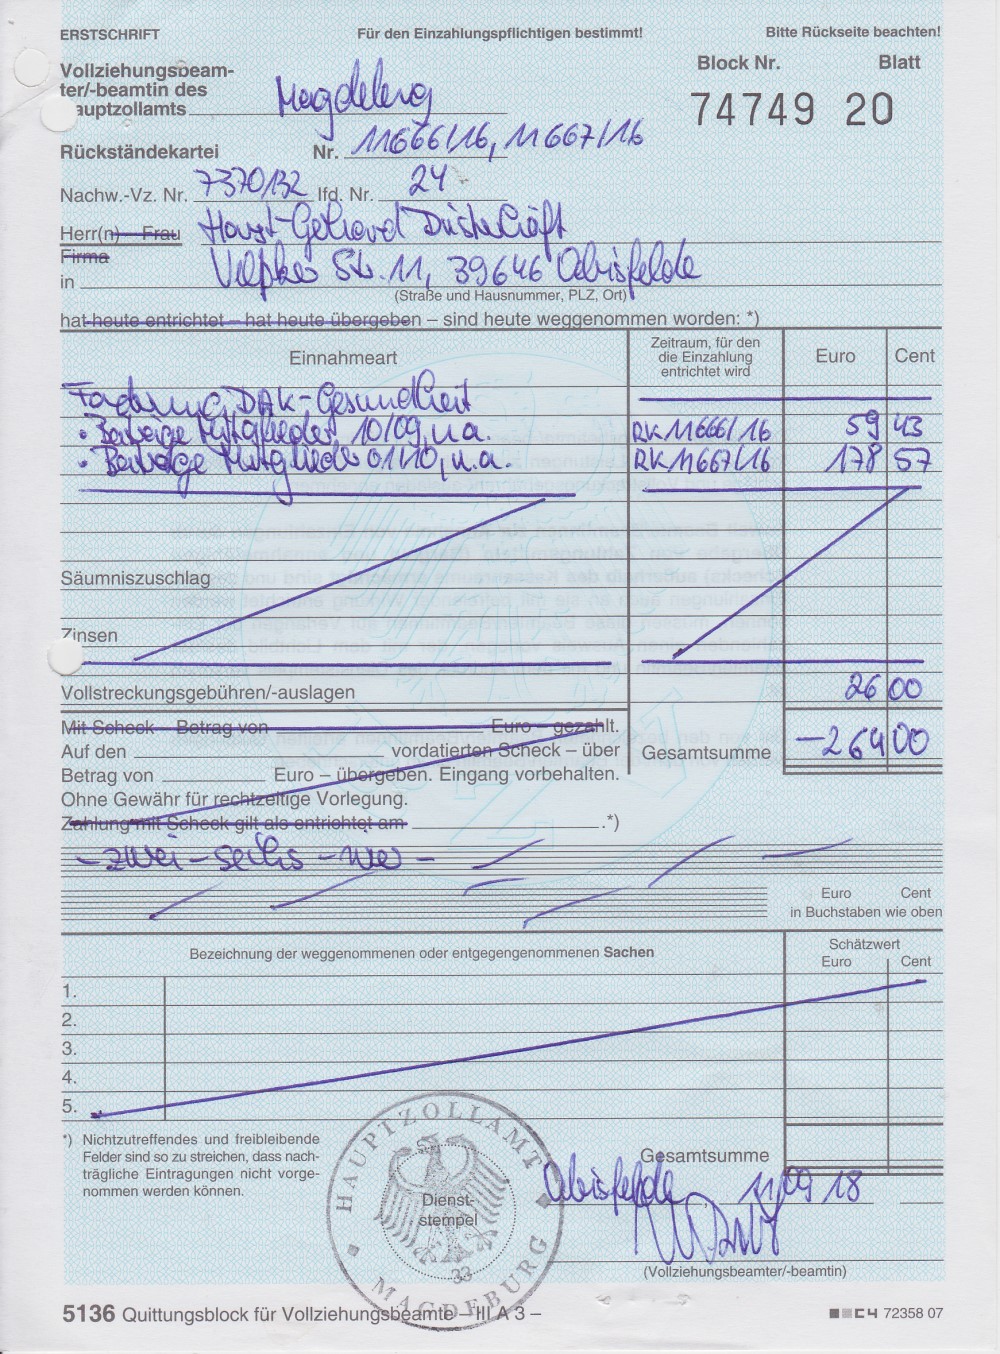 ERSTSCHRIFT
Für den Einzahlungspflichtigen bestimmt!
Bitte Rückseite beachten!
Vollziehungsbeam-
ter/-beamtin des
auptzollamts Magdeburg
Block Nr. Blatt
74749 20
Rückständekartei Nr. 11666/16, 11667/16
Nachw.-Vz. Nr. 7370132 lfd. Nr. 24
Herr(n) – Frau Horst-Gerhard Düsterhöft
Firma
in Velpker Str. 11, 39646 Oebisfelde
(Straße und Hausnummer, PLZ, Ort)
hat heute entrichtet – hat heute übergeben – sind heute weggenommen worden: *)
Einnahmeart
Zeitraum, für den
die Einzahlung
entrichtet wird
Euro Cent
Forderung DAK-Gesundheit
• Beiträge Mitglieder 10/09, u.a. RK 11666/16 59 43
• Beiträge Mitglieder 01/10, u.a. RK 11667/16 178 57
Säumniszuschlag
Zinsen
Vollstreckungsgebühren/-auslagen 26 00
Mit Scheck – Betrag von Euro – gezahlt.
Auf den vordatierten Scheck – über
Gesamtsumme –264 00
Betrag von Euro – übergeben. Eingang vorbehalten.
Ohne Gewähr für rechtzeitige Vorlegung.
Zahlung mit Scheck gilt als entrichtet am .*)
– zwei – sechs – vier –
Euro Cent
in Buchstaben wie oben
Bezeichnung der weggenommenen oder entgegengenommenen Sachen
Schätzwert
Euro Cent
1.
2.
3.
4.
5.
*) Nichtzutreffendes und freibleibende
Felder sind so zu streichen, dass nach-
trägliche Eintragungen nicht vorge-
nommen werden können.
HAUPTZOLLAMT
Dienst-
stempel
33
MAGDEBURG
Gesamtsumme
Oebisfelde 11/09 18
(Vollziehungsbeamter/-beamtin)
5136 Quittungsblock für Vollziehungsbeamte – III A 3 –
72358 07